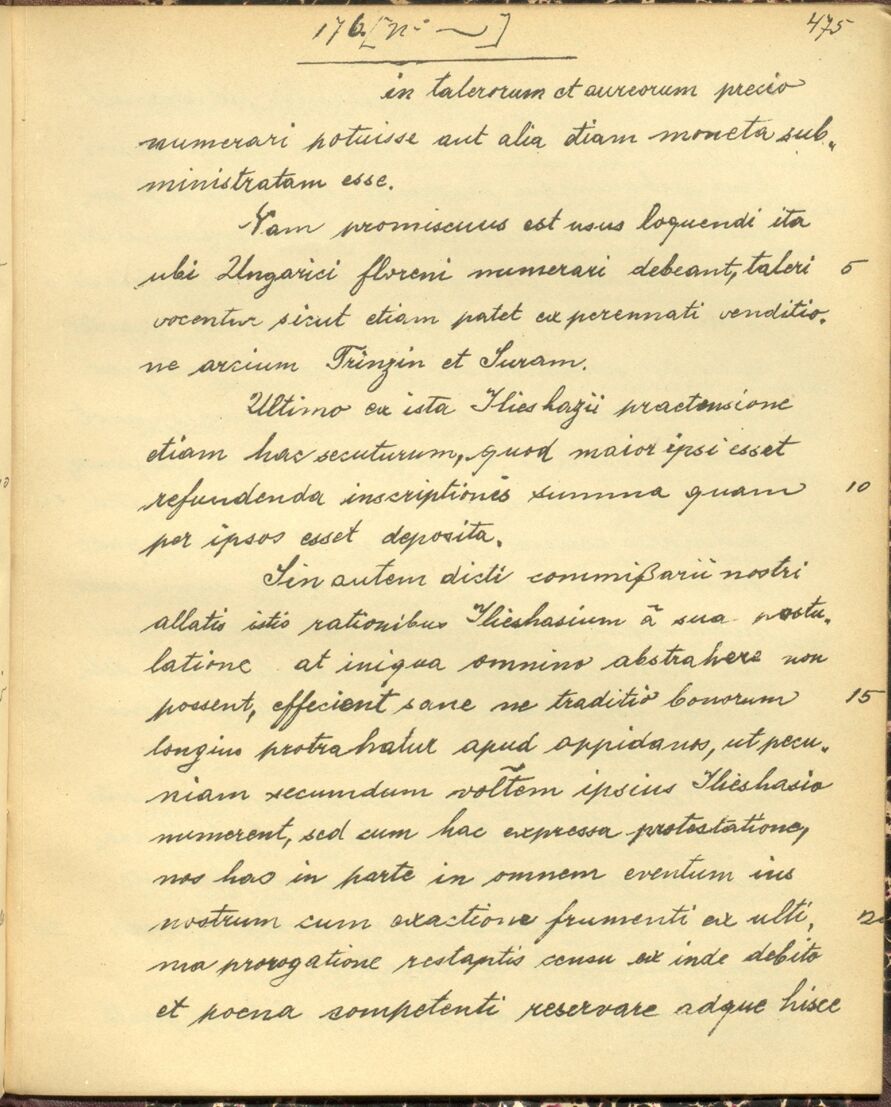 176 [nº —]
475
in talerorum et aureorum precio
numerari potuisse aut alia etiam moneta sub„
ministratam esse.
Nam promiscuus est usus loquendi ita
ubi Ungarici floreni numerari debeant, taleri 5
vocentur sicut etiam patet ex perennati venditio„
ne arcium Trinzin et Suram.
Ultimo ex ista Ilieshazii praetensione
etiam hac secuturum, quod maior ipsi esset
refundenda inscriptionis summa quam 10
per ipsos esset deposita.
Sin autem dicti commißarii nostri
allatis istis rationibus Ilieshasium â sua postu„
latione at iniqua omnino abstrahere non
possent, effecient sane ne traditio bonorum 15
longius protrahatur apud oppidanos, ut pecu„
niam secundum voltem ipsius Ilieshasio
numerent, sed cum hac expressa protestatione,
nos hac in parte in omnem eventum ius
nostrum cum exactione frumenti ex ulti„ 20
ma prorogatione restantis censu ex inde debito
et poena competenti reservare adque hisce